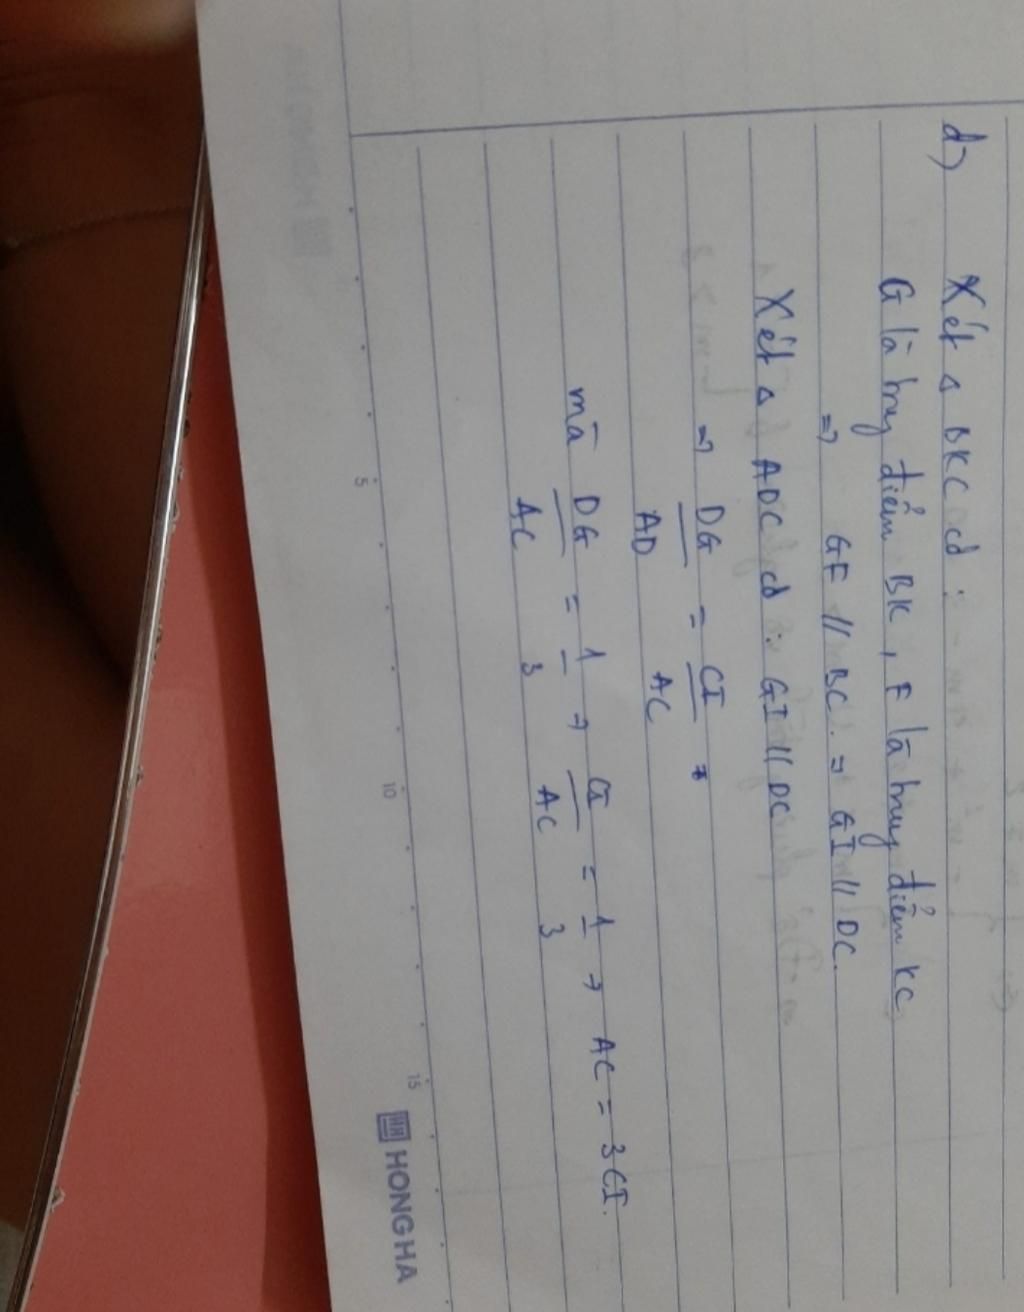 d) Xét Δ BKC có :
G là trung điểm BK , F là trung điểm KC
=> GF // BC. => GI // DC.
Xét Δ ADC có : GI // DC
=> DG/AD = CI/AC
mà DG/AC = 1/3 => CI/AC = 1/3 => AC = 3CI.
5 10 15
HONG HA